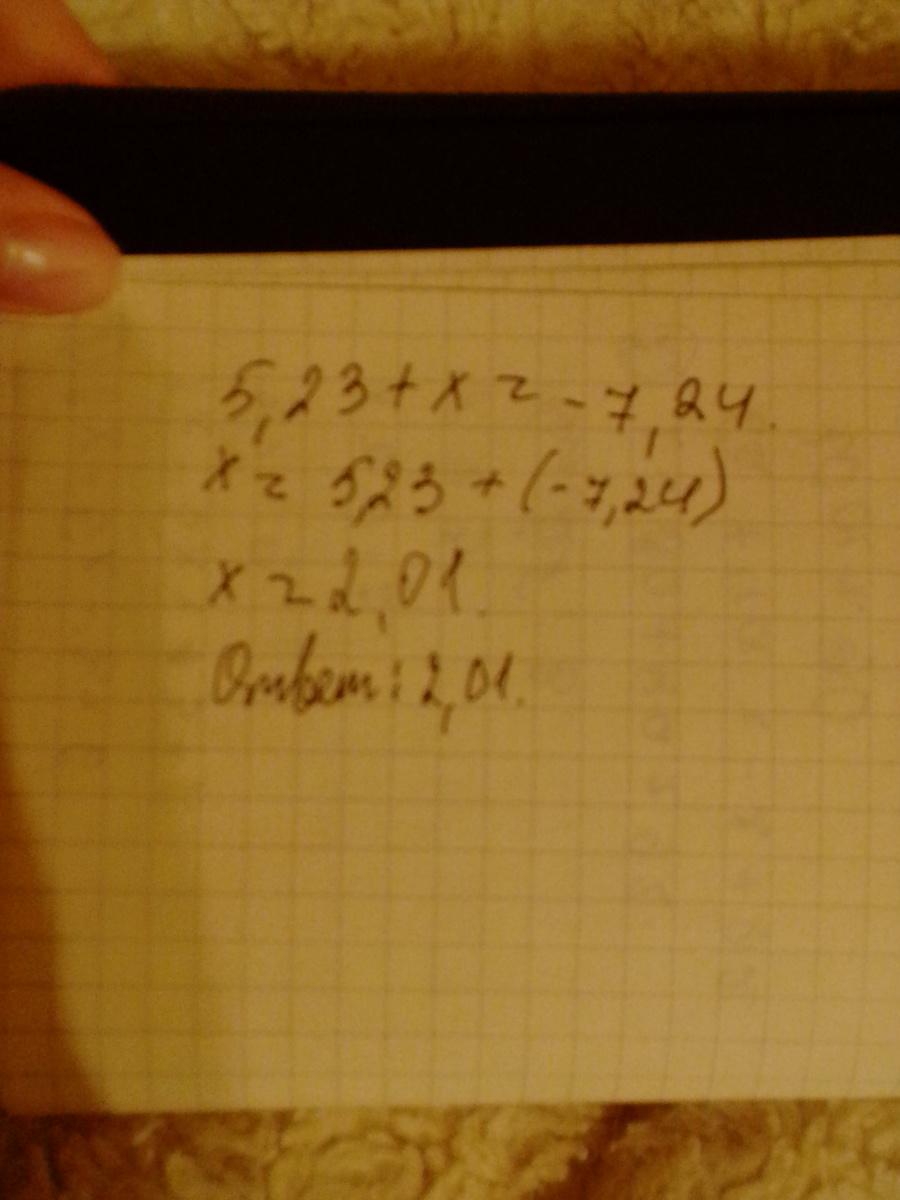 5,23 + x = -7,24.
x = 5,23 + (-7,24)
x = 2,01.
Ответ: 2,01.